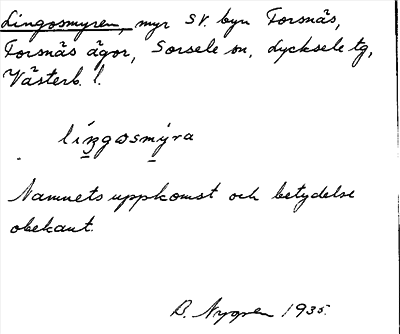 Lingosmyren, myr SV. byn Forsnäs,
Forsnäs ägor, Sorsele sn, Lycksele tg,
Västerb. l.
líŋgosmỳra
Namnets uppkomst och betydelse
obekant.
B. Nygren 1935.